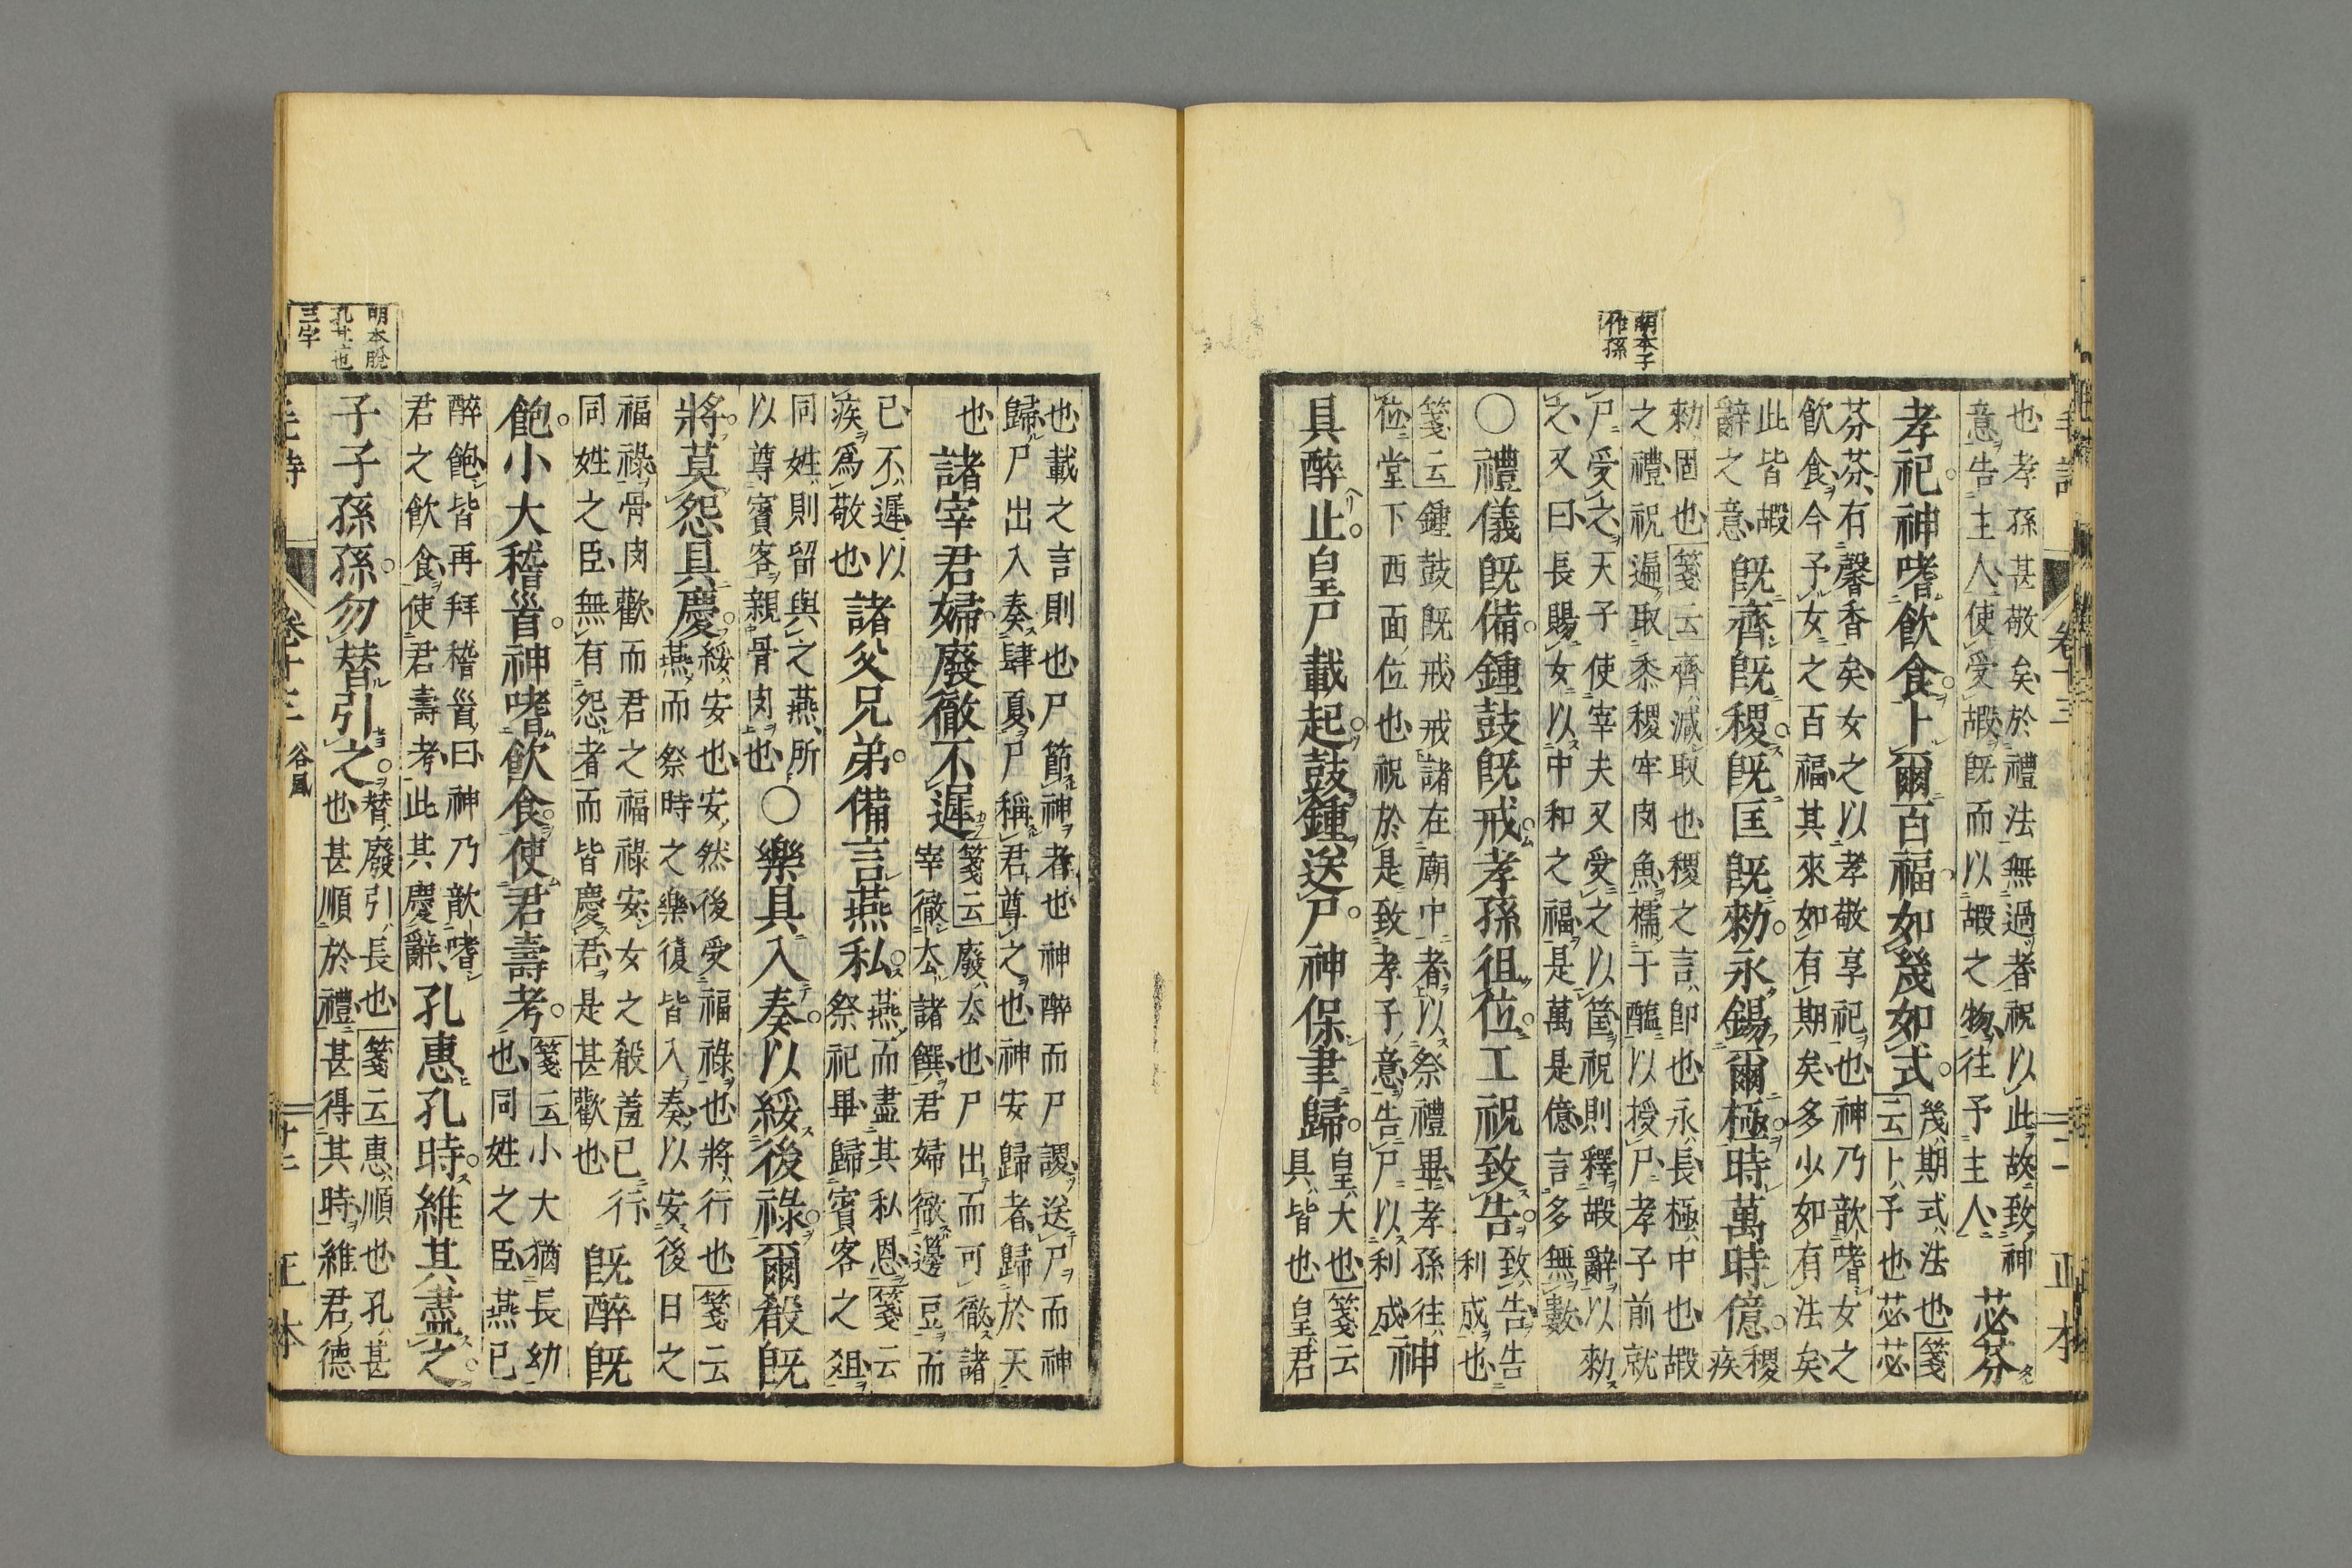 明本子
作孫
也孝孫甚敬矣於禮法無過者祝以此故致神
意告主人使受嘏既而以嘏之物往予主人
苾芬
孝祀神嗜飲食卜爾百福如幾如式
幾期式法也箋
云卜予也苾苾
芬芬有馨香矣女之以孝敬享祀也神乃歆嗜女之
飲食今予女之百福其來如有期矣多少如有法矣
此皆嘏
辭之意
既齊既稷既匡既勑永錫爾極時萬時億
稷
疾
勑固也箋云齊減取也稷之言卽也永長極中也嘏
之禮祝遍取黍稷牢肉魚擩于醢以授尸孝子前就
尸受之天子使宰夫又受之以筐祝則釋嘏辭以勑
之又曰長賜女以中和之福是萬是億言多無數
○禮儀既備鍾鼓既戒孝孫徂位工祝致告
致告告
利成也
箋云鍾鼓既戒戒諸在廟中者以祭禮畢孝孫往
位堂下西面位也祝於是致孝子意告尸以利成
神
具醉止皇尸載起鼓鍾送尸神保聿歸
皇大也箋云
具皆也皇君
也載之言則也尸節神者也神醉而尸謖送尸而神
歸尸出入奏肆夏尸稱君尊之也神安歸者歸於天
也
諸宰君婦廢徹不遲
箋云廢去也尸出而可徹諸
宰徹去諸饌君婦徹籩豆而
已不遲以
疾爲敬也
諸父兄弟備言燕私
燕而盡其私恩箋云
祭祀畢歸賓客之俎
同姓則留與之燕所
以尊賓客親骨肉也
○樂具入奏以綏後祿爾殽既
將莫怨具慶
綏安也安然後受福祿也將行也箋云
燕而祭時之樂復皆入奏以安後日之
福祿骨肉歡而君之福祿安女之殽羞已行
同姓之臣無有怨者而皆慶君是甚歡也
既醉既
飽小大稽首神嗜飲食使君壽考
箋云小大猶長幼
也同姓之臣燕已
醉飽皆再拜稽首曰神乃歆嗜
君之飲食使君壽考此其慶辭
孔惠孔時維其盡之
子子孫孫勿替引之
替廢引長也箋云惠順也孔甚
也甚順於禮甚得其時維君德
卷十三 谷風
正本
明本脫
孔甚也
三字